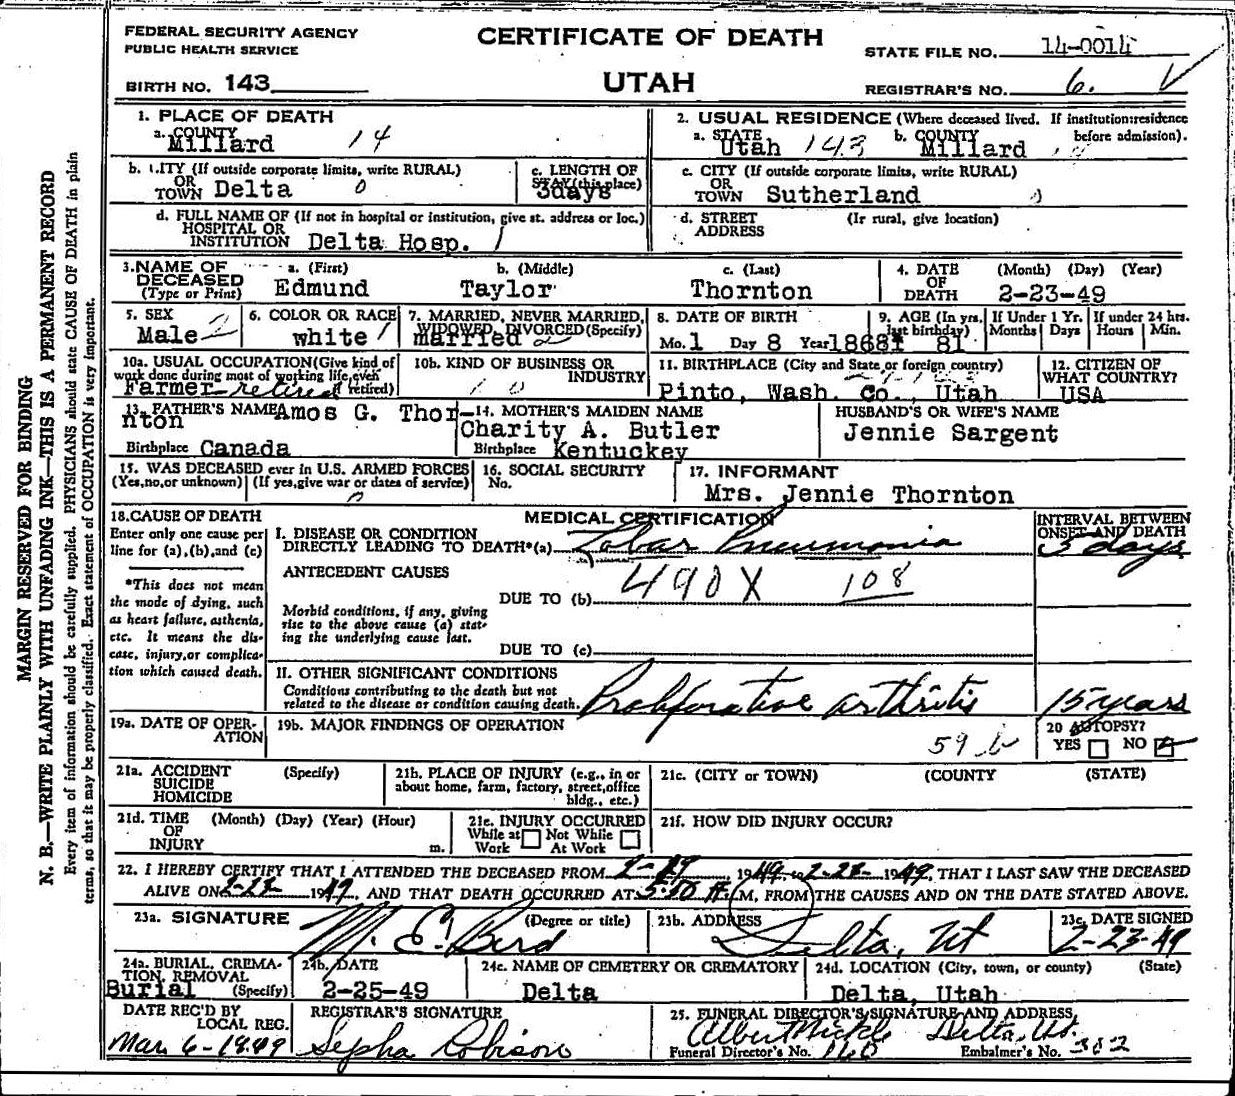 FEDERAL SECURITY AGENCY
PUBLIC HEALTH SERVICE
CERTIFICATE OF DEATH
STATE FILE NO. 14-0014
BIRTH NO. 143
UTAH
REGISTRAR'S NO. 6.
1. PLACE OF DEATH
a. COUNTY
Millard 14
2. USUAL RESIDENCE (Where deceased lived. If institution:residence
before admission).
a. STATE Utah 143 b. COUNTY Millard
b. CITY (If outside corporate limits, write RURAL)
OR
TOWN Delta 0
c. LENGTH OF
STAY (this place)
3days
c. CITY (If outside corporate limits, write RURAL)
OR
TOWN Sutherland
d. FULL NAME OF (If not in hospital or institution, give st. address or loc.)
HOSPITAL OR
INSTITUTION Delta Hosp. 1
d. STREET (If rural, give location)
ADDRESS
3.NAME OF
DECEASED
(Type or Print)
a. (First)
Edmund
b. (Middle)
Taylor
c. (Last)
Thornton
4. DATE
OF
DEATH
(Month) (Day) (Year)
2-23-49
5. SEX
Male
6. COLOR OR RACE
white 1
7. MARRIED, NEVER MARRIED,
WIDOWED, DIVORCED(Specify)
married 2
8. DATE OF BIRTH
Mo.1 Day 8 Year1868
9. AGE (In yrs,
last birthday)
81
If Under 1 Yr.
Months Days
If under 24 hrs.
Hours Min.
10a. USUAL OCCUPATION(Give kind of
work done during most of working life,even
if retired)
Farmer-retired
10b. KIND OF BUSINESS OR
INDUSTRY
11. BIRTHPLACE (City and State or foreign country)
Pinto, Wash. Co., Utah
12. CITIZEN OF
WHAT COUNTRY?
USA
13. FATHER'S NAME Amos G. Thor-
nton
Birthplace Canada
14. MOTHER'S MAIDEN NAME
Charity A. Butler
Birthplace Kentuckey
HUSBAND'S OR WIFE'S NAME
Jennie Sargent
15. WAS DECEASED ever in U.S. ARMED FORCES
(Yes,no,or unknown) (If yes,give war or dates of service)
16. SOCIAL SECURITY
No.
17. INFORMANT
Mrs. Jennie Thornton
18.CAUSE OF DEATH
Enter only one cause per
line for (a),(b),and (c)
*This does not mean
the mode of dying, such
as heart failure, asthenia,
etc. It means the dis-
ease, injury,or complica-
tion which caused death.
MEDICAL CERTIFICATION
I. DISEASE OR CONDITION
DIRECTLY LEADING TO DEATH*(a) Lobar Pneumonia
INTERVAL BETWEEN
ONSET AND DEATH
5 days
ANTECEDENT CAUSES
490X 108
DUE TO (b)
Morbid conditions, if any, giving
rise to the above cause (a) stat-
ing the underlying cause last.
DUE TO (c)
II. OTHER SIGNIFICANT CONDITIONS
Conditions contributing to the death but not
related to the disease or condition causing death.
Proliferative arthritis
15 years
19a. DATE OF OPER-
ATION
19b. MAJOR FINDINGS OF OPERATION
59 b
20 AUTOPSY?
YES NO
21a. ACCIDENT (Specify)
SUICIDE
HOMICIDE
21b. PLACE OF INJURY (e.g., in or
about home, farm, factory, street,office
bldg., etc.)
21c. (CITY or TOWN) (COUNTY (STATE)
21d. TIME (Month) (Day) (Year) (Hour)
OF
INJURY m.
21e. INJURY OCCURRED
While at Not While
Work At Work
21f. HOW DID INJURY OCCUR?
22. I HEREBY CERTIFY THAT I ATTENDED THE DECEASED FROM 2-19 1949, to 2-22- 1949, THAT I LAST SAW THE DECEASED
ALIVE ON 2-22- 1949, AND THAT DEATH OCCURRED AT 5:50 A.M, FROM THE CAUSES AND ON THE DATE STATED ABOVE.
23a. SIGNATURE (Degree or title)
M. E. Bird
23b. ADDRESS
Delta, Ut
23c. DATE SIGNED
2-23-49
24a. BURIAL, CREMA-
TION, REMOVAL
Burial (Specify)
24b. DATE
2-25-49
24c. NAME OF CEMETERY OR CREMATORY
Delta
24d. LOCATION (City, town, or county) (State)
Delta, Utah
DATE REC'D BY
LOCAL REG.
Mar 6-1949
REGISTRAR'S SIGNATURE
Sepha Robison
25. FUNERAL DIRECTOR'S SIGNATURE AND ADDRESS,
Albert Mickle Delta, Ut.
Funeral Director's No. 160 Embalmer's No. 302
MARGIN RESERVED FOR BINDING
N. B.—WRITE PLAINLY WITH UNFADING INK—THIS IS A PERMANENT RECORD
Every item of information should be carefully supplied. PHYSICIANS should state CAUSE OF DEATH in plain
terms, so that it may be properly classified. Exact statement of OCCUPATION is very important.